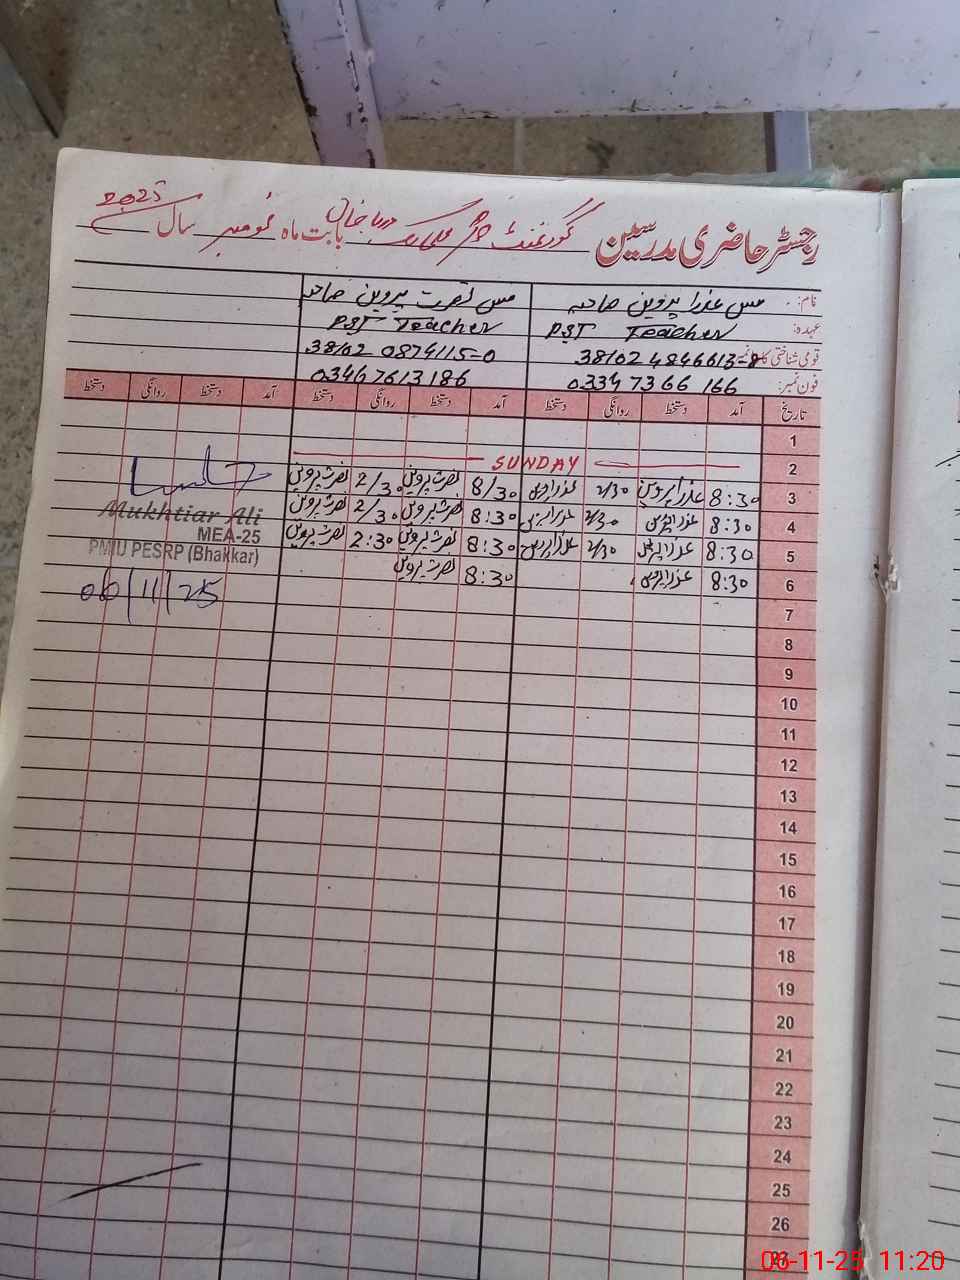 رجسٹر حاضری مدرسین گورنمنٹ بابت ماہ نومبر سال 2025
نام: مس عذرا پروین صاحبہ مس نصرت پروین صاحبہ
عہدہ: PST Teacher PST Teacher
قومی شناختی کارڈ نمبر 38102 4846613-8 38102 0874115-0
فون نمبر: 0334 7366 166 03467613186
تاریخ آمد دستخط روانگی دستخط آمد دستخط روانگی دستخط آمد دستخط روانگی دستخط
1
2 SUNDAY
3 8:30 عذرا پروین 2/30 عذرا پروین 8/30 نصرت پروین 2/30 نصرت پروین
4 8:30 عذرا پروین 2/30 عذرا پروین 8:30 نصرت پروین 2/30 نصرت پروین
5 8:30 عذرا پروین 2/30 عذرا پروین 8:30 نصرت پروین 2:30 نصرت پروین
6 8:30 عذرا پروین 8:30 نصرت پروین
Mukhtiar Ali
MEA-25
PMIU PESRP (Bhakkar)
06/11/25
7
8
9
10
11
12
13
14
15
16
17
18
19
20
21
22
23
24
25
26
06-11-25 11:20